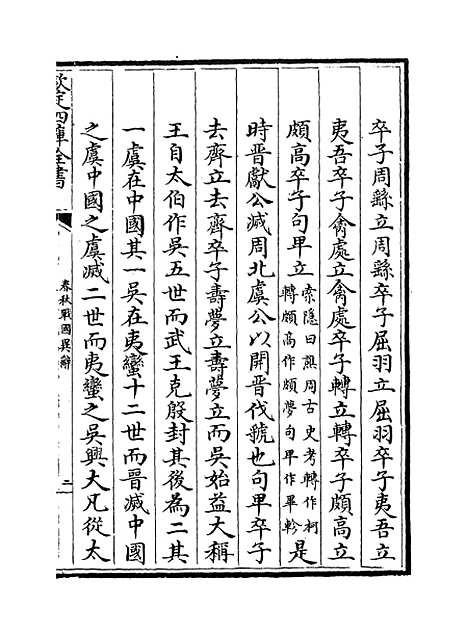 卒子周繇立周繇卒子屈羽立屈羽卒子夷吾立
夷吾卒子禽處立禽處卒子轉立轉卒子頗高立
頗高卒子句卑立索隱曰熊周古史考轉作柯
轉頗高作頗夢句卑作畢軫是
時晉獻公滅周北虞公以開晉伐虢也句卑卒子
去齊立去齊卒子壽夢立壽夢立而吳始益大稱
王自太伯作吳五世而武王克殷封其後為二其
一虞在中國其一吳在夷蠻十二世而晉滅中國
之虞中國之虞滅二世而夷蠻之吳興大凡從太
欽定四庫全書
春秋戰國異辭
二